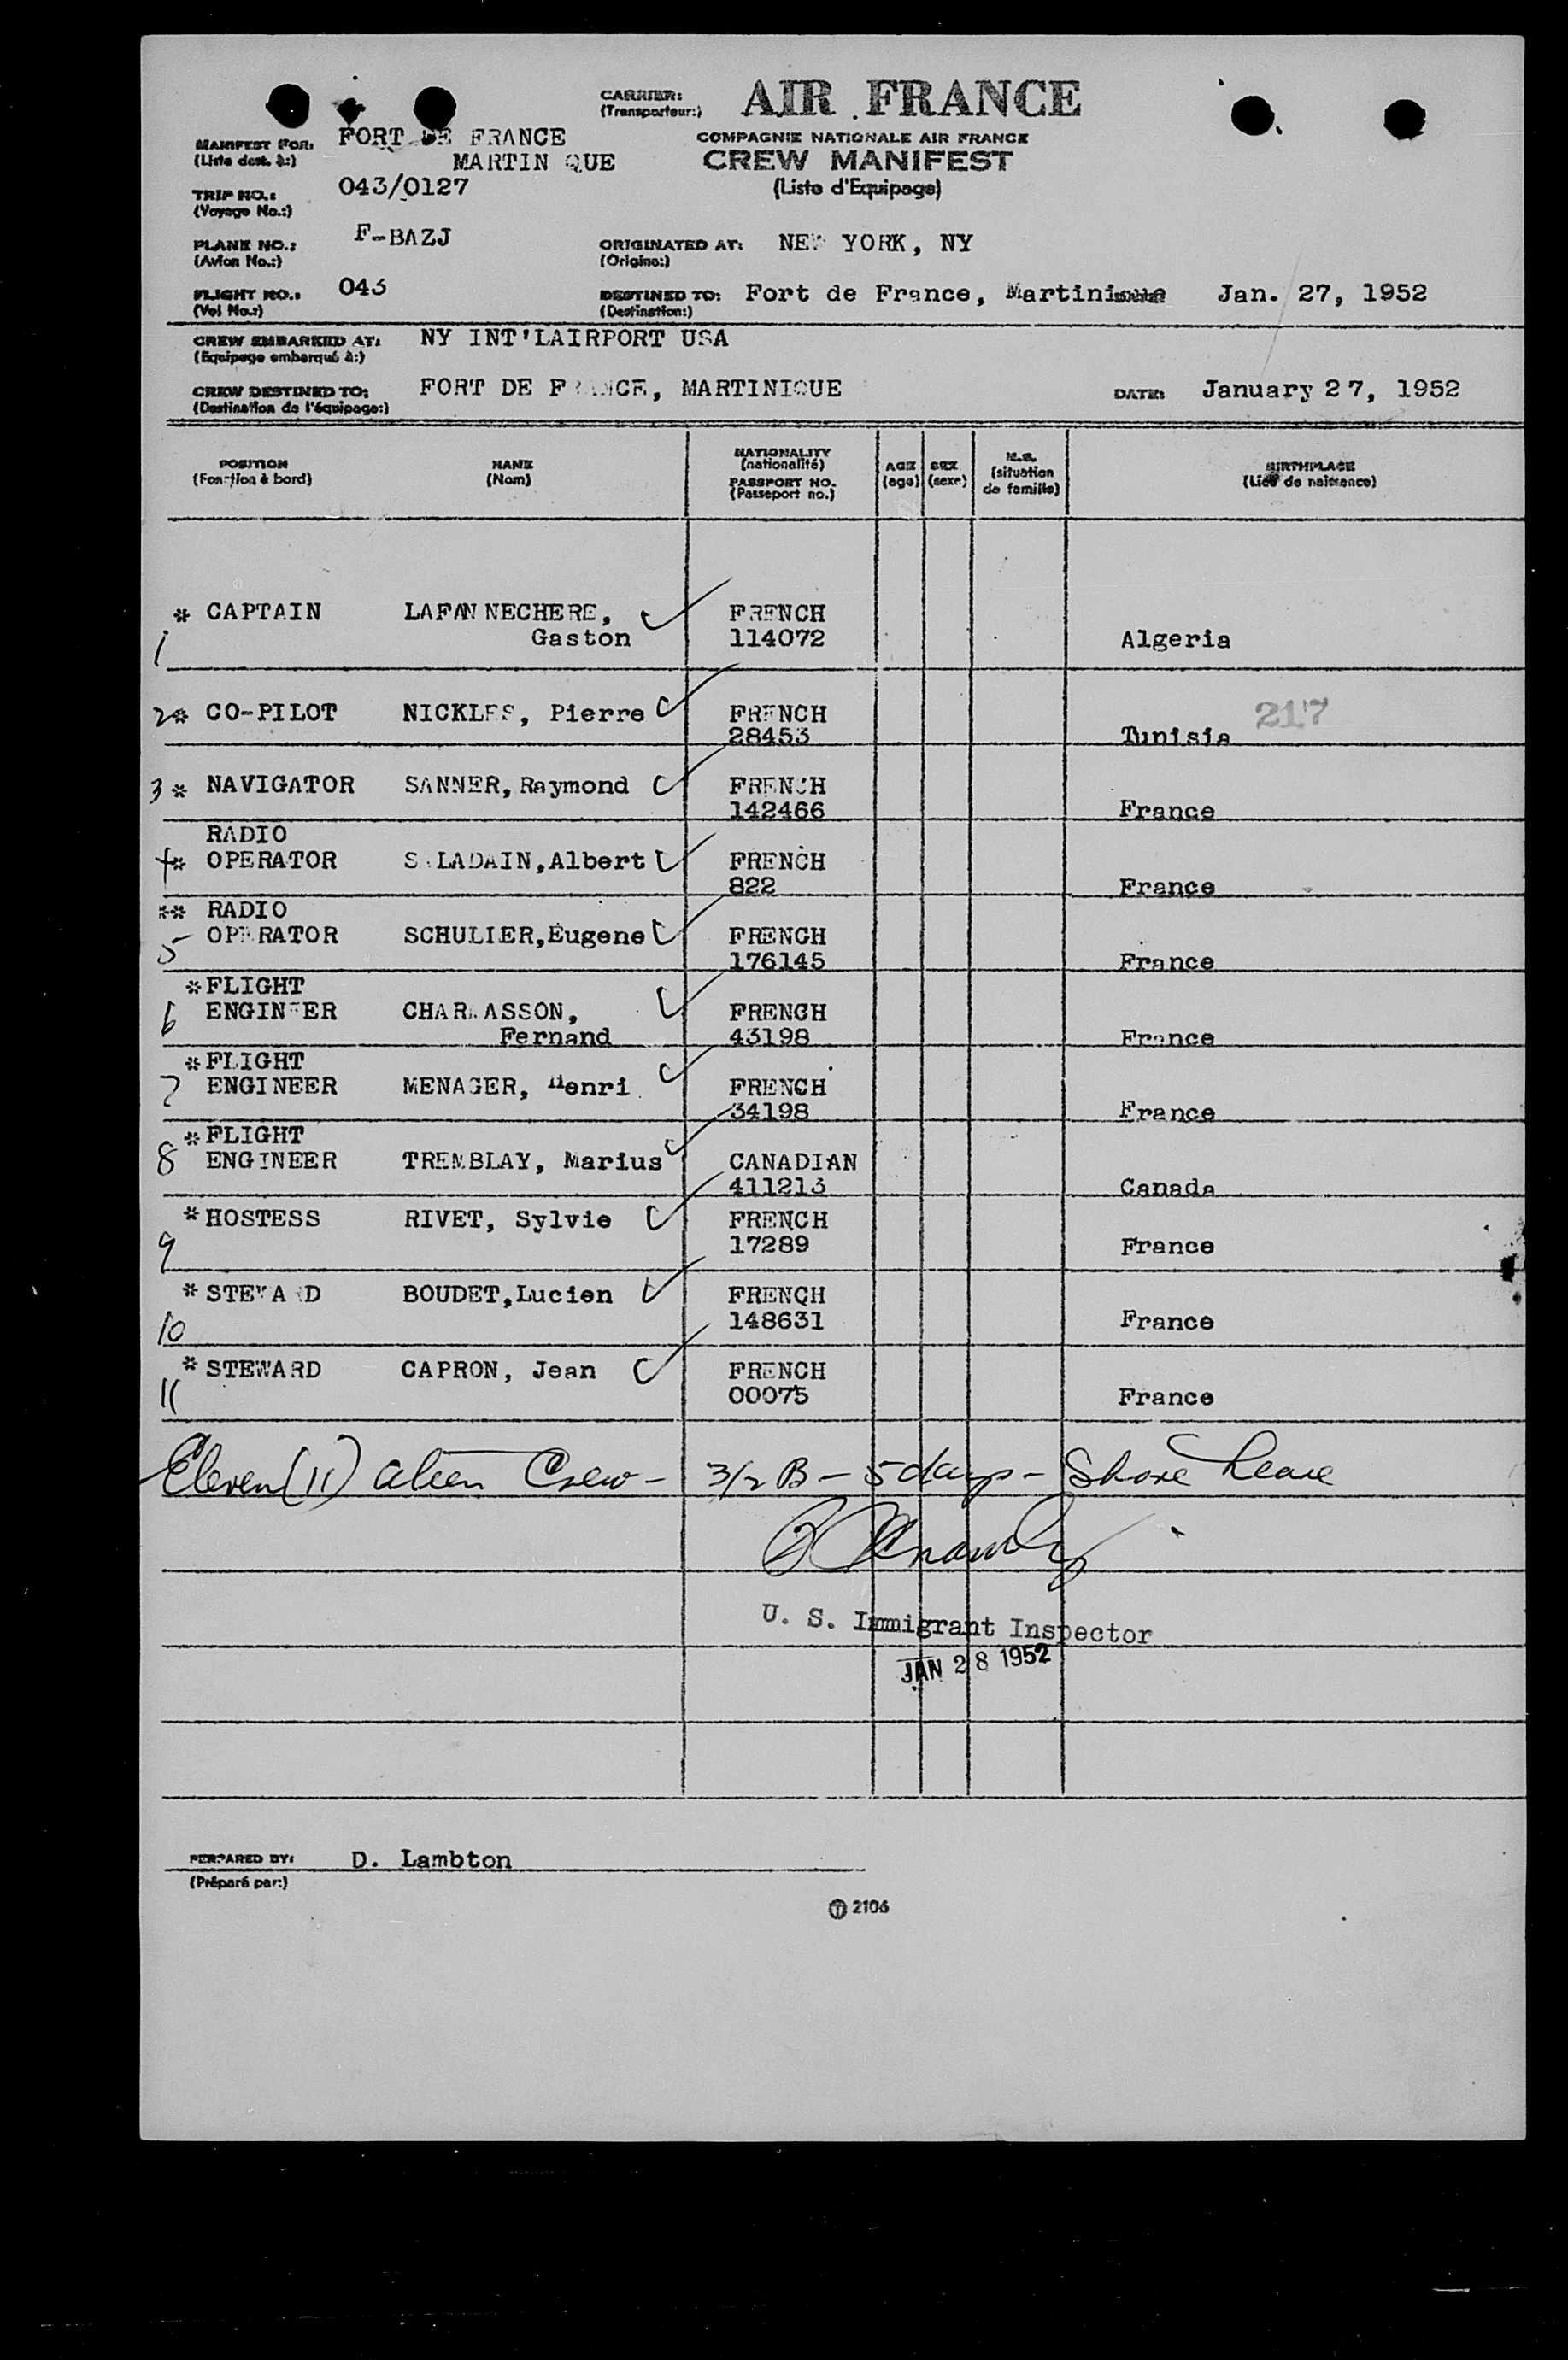 CARRIER: AIR FRANCE
(Transporteur:)
COMPAGNIE NATIONALE AIR FRANCE
CREW MANIFEST
(Liste d'Equipage)
MANIFEST FOR: FORT DE FRANCE
(Liste dest. à:) MARTIN QUE
TRIP NO.: 043/0127
(Voyage No.:)
PLANE NO.: F-BAZJ
(Avion No.:)
ORIGINATED AT: NEW YORK, NY
(Origine:)
FLIGHT NO.: 043
(Vol No.:)
DESTINED TO: Fort de France, Martinique Jan. 27, 1952
(Destination:)
CREW EMBARKED AT: NY INT'LAIRPORT USA
(Equipage embarqué à:)
CREW DESTINED TO: FORT DE FRANCE, MARTINIQUE DATE: January 27, 1952
(Destination de l'équipage:)
POSITION NAME NATIONALITY AGE SEX M.S. BIRTHPLACE
(Fonction à bord) (Nom) (nationalité) (age) (sexe) (situation de famille) (Lieu de naissance)
PASSPORT NO.
(Passeport no.)
* CAPTAIN LAFANNECHERE, FRENCH
1 Gaston 114072 Algeria
217
2* CO-PILOT NICKLES, Pierre FRENCH
28453 Tunisia
3* NAVIGATOR SANNER, Raymond FRENCH
142466 France
RADIO
4* OPERATOR SALADAIN,Albert FRENCH
822 France
** RADIO
5 OPERATOR SCHULIER,Eugene FRENCH
176145 France
*FLIGHT
6 ENGINEER FRENCH
Fernand 43198 France
*FLIGHT
7 ENGINEER MENAGER, Henri FRENCH
34198 France
*FLIGHT
8 ENGINEER TREMBLAY, Marius CANADIAN
411213 Canada
*HOSTESS RIVET, Sylvie FRENCH
9 17289 France
*STEWARD BOUDET,Lucien FRENCH
10 148631 France
*STEWARD CAPRON, Jean FRENCH
11 00075 France
Eleven (11) alien Crew - 3/2 B - 5 days - Shore Leave
U. S. Immigrant Inspector
JAN 28 1952
PREPARED BY: D. Lambton
(Préparé par:)
2106